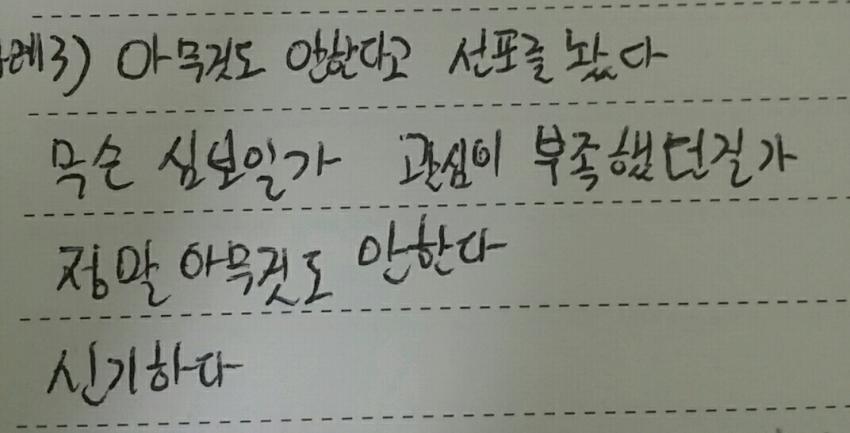 사례3) 아무것도 안한다고 선포를 놨다
무슨 심보일가 관심이 부족했던걸가
정말 아무것도 안한다
신기하다